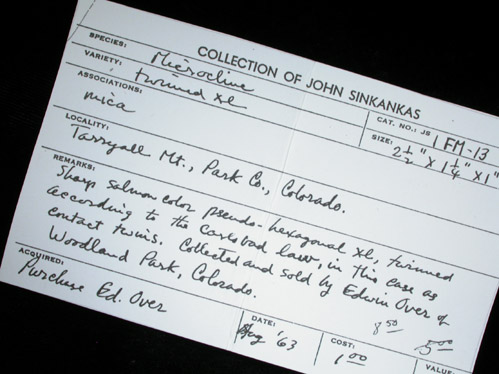 COLLECTION OF JOHN SINKANKAS
SPECIES: Microcline
CAT. NO.: JS 1 FM-13
VARIETY: twinned xl
SIZE: 2 1/2" x 1 1/4" x 1"
ASSOCIATIONS:
mica
LOCALITY:
Tarryall Mt., Park Co., Colorado.
REMARKS:
Sharp salmon color pseudo-hexagonal xl, twinned
according to the carlsbad law, in this case as
contact twins. Collected and sold by Edwin Over of
Woodland Park, Colorado.
8 50
5 00
ACQUIRED:
Purchase Ed. Over
DATE:
Aug '63
COST:
1 00
VALUE: